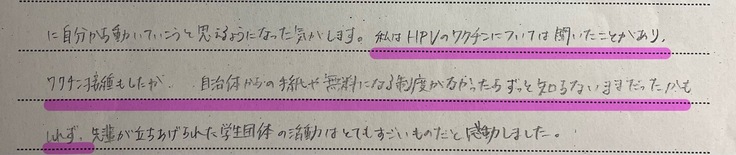 に自分から動いていこうと思えるようになった気がします。私はHPVのワクチンについては聞いたことがあり、
ワクチン接種もしたが、自治体からの手紙や無料になる制度がなかったらずっと知らないままだったかも
しれず、先輩が立ちあげられた学生団体の活動はとてもすごいものだと感動しました。